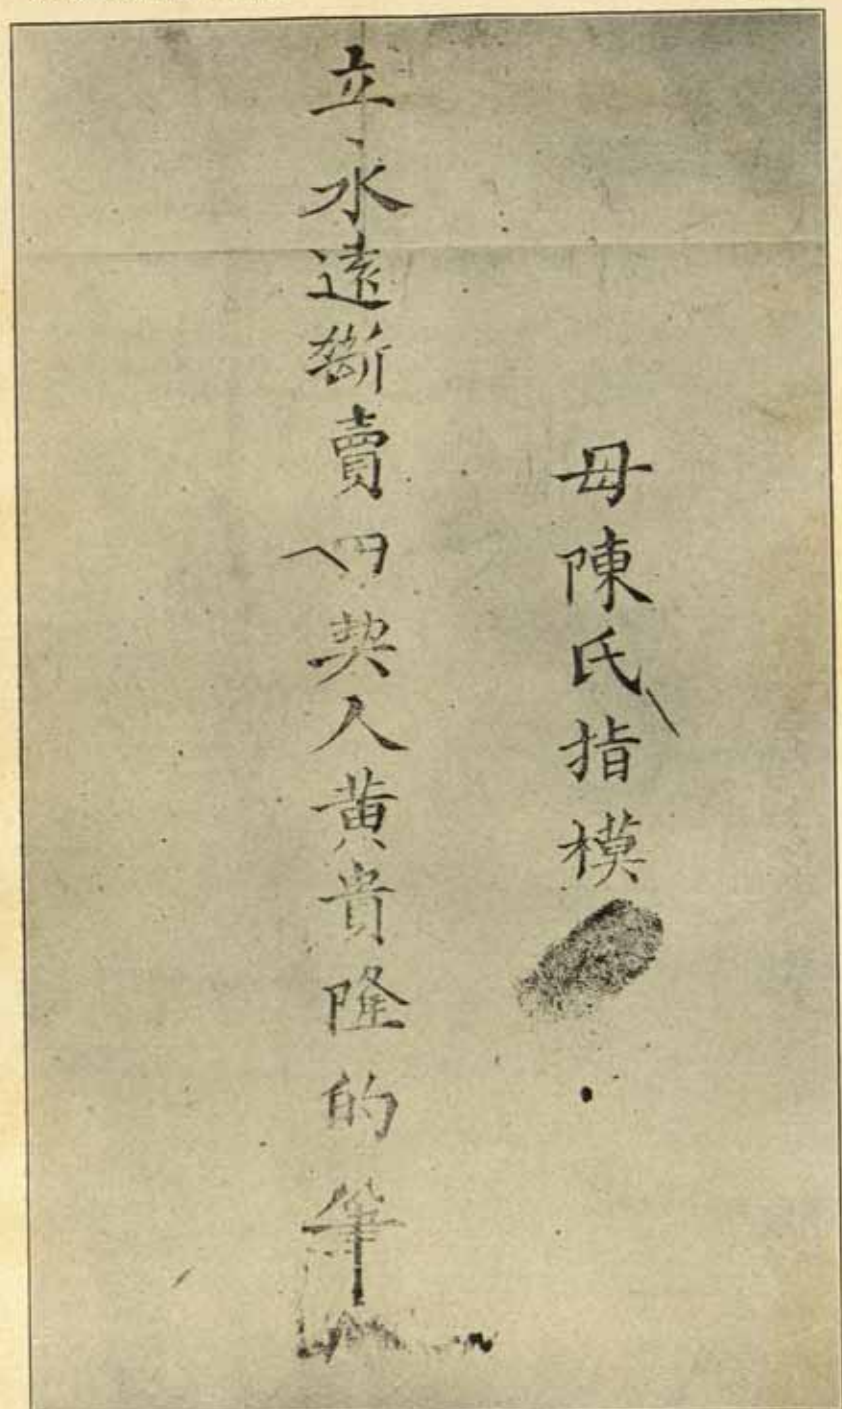 母陳氏指模
立永遠斷賣田契人黄貴隆的筆